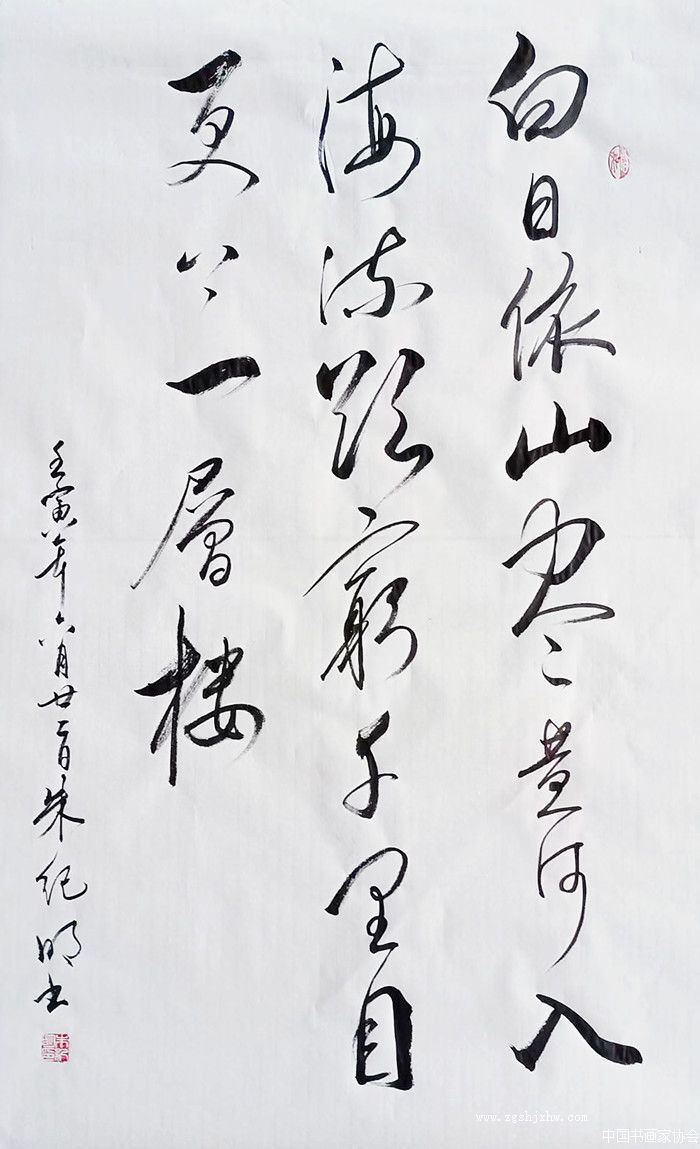 白日依山尽黄河入
海流欲窮千里目
更上一層楼
壬寅年六月廿二日朱纪明书
www.zgshjxhw.com
中国书画家协会